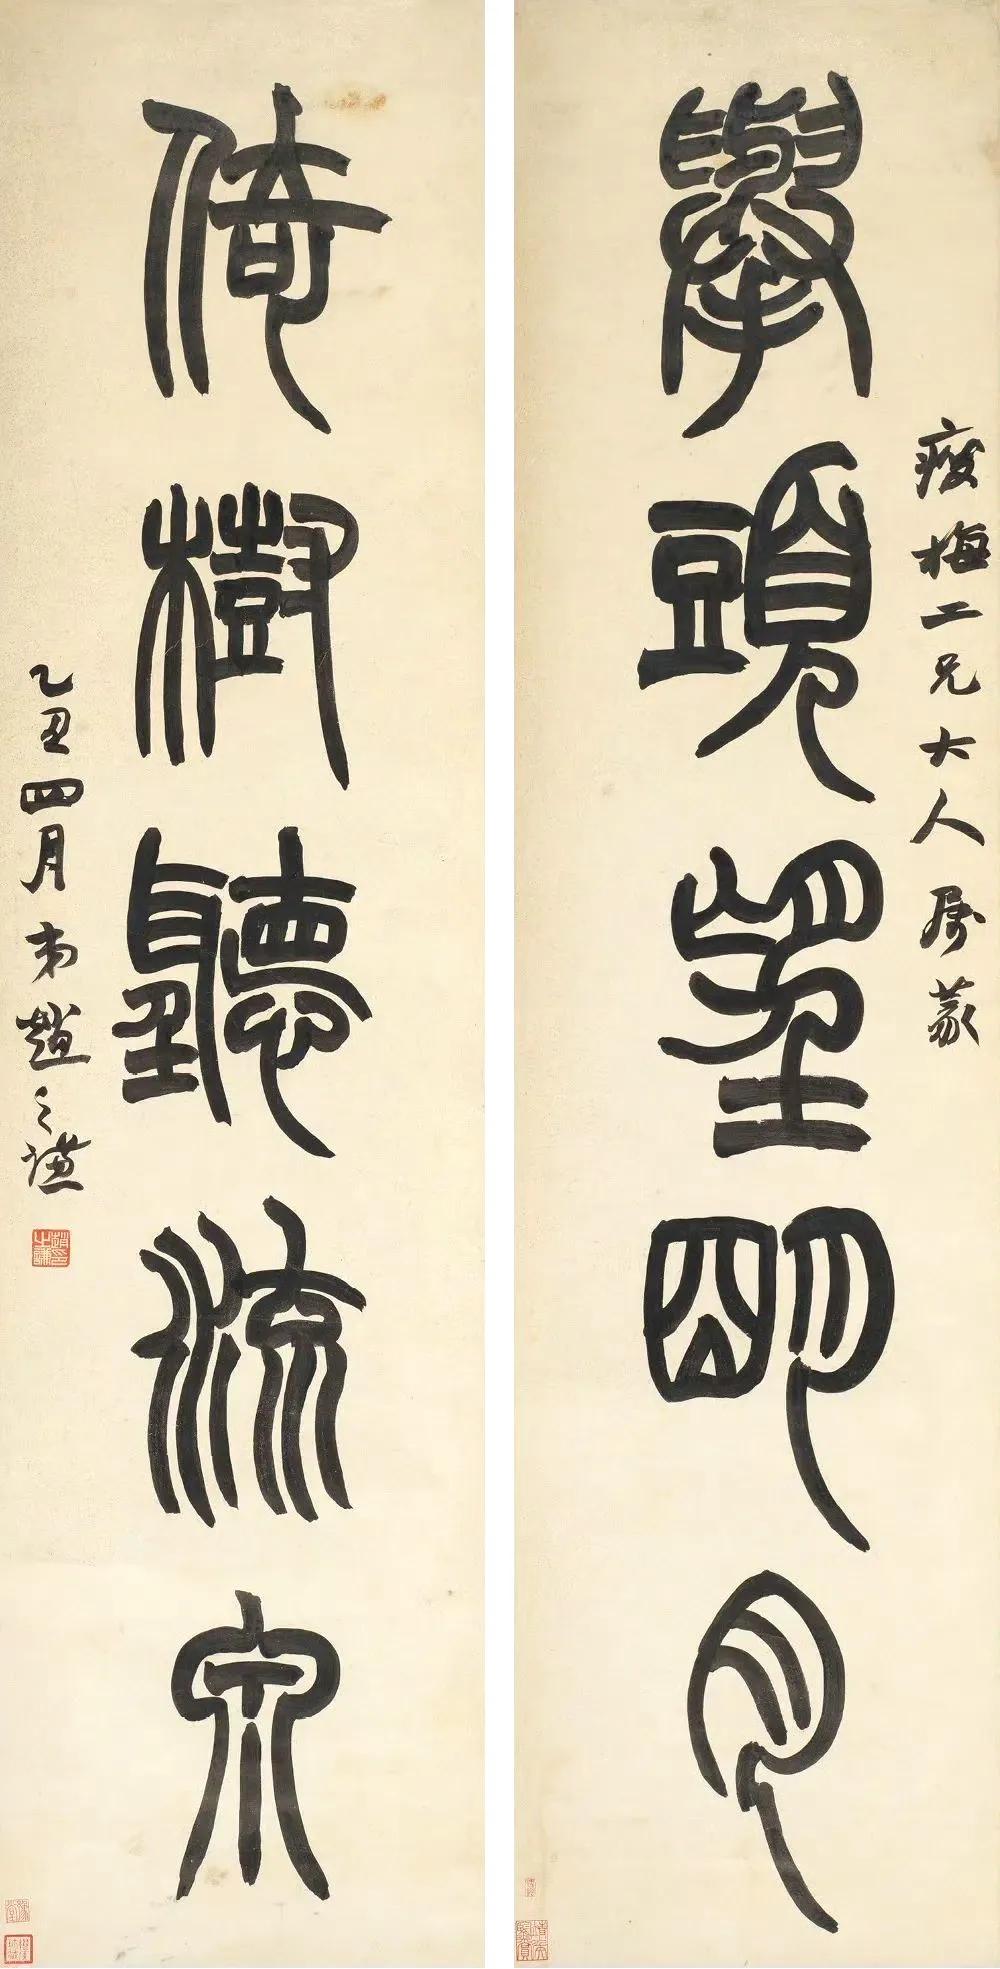 舉頭望明月
瘦梅二兄大人屬篆
倚樹聽流泉
乙丑四月弟趙之謙
趙之謙印